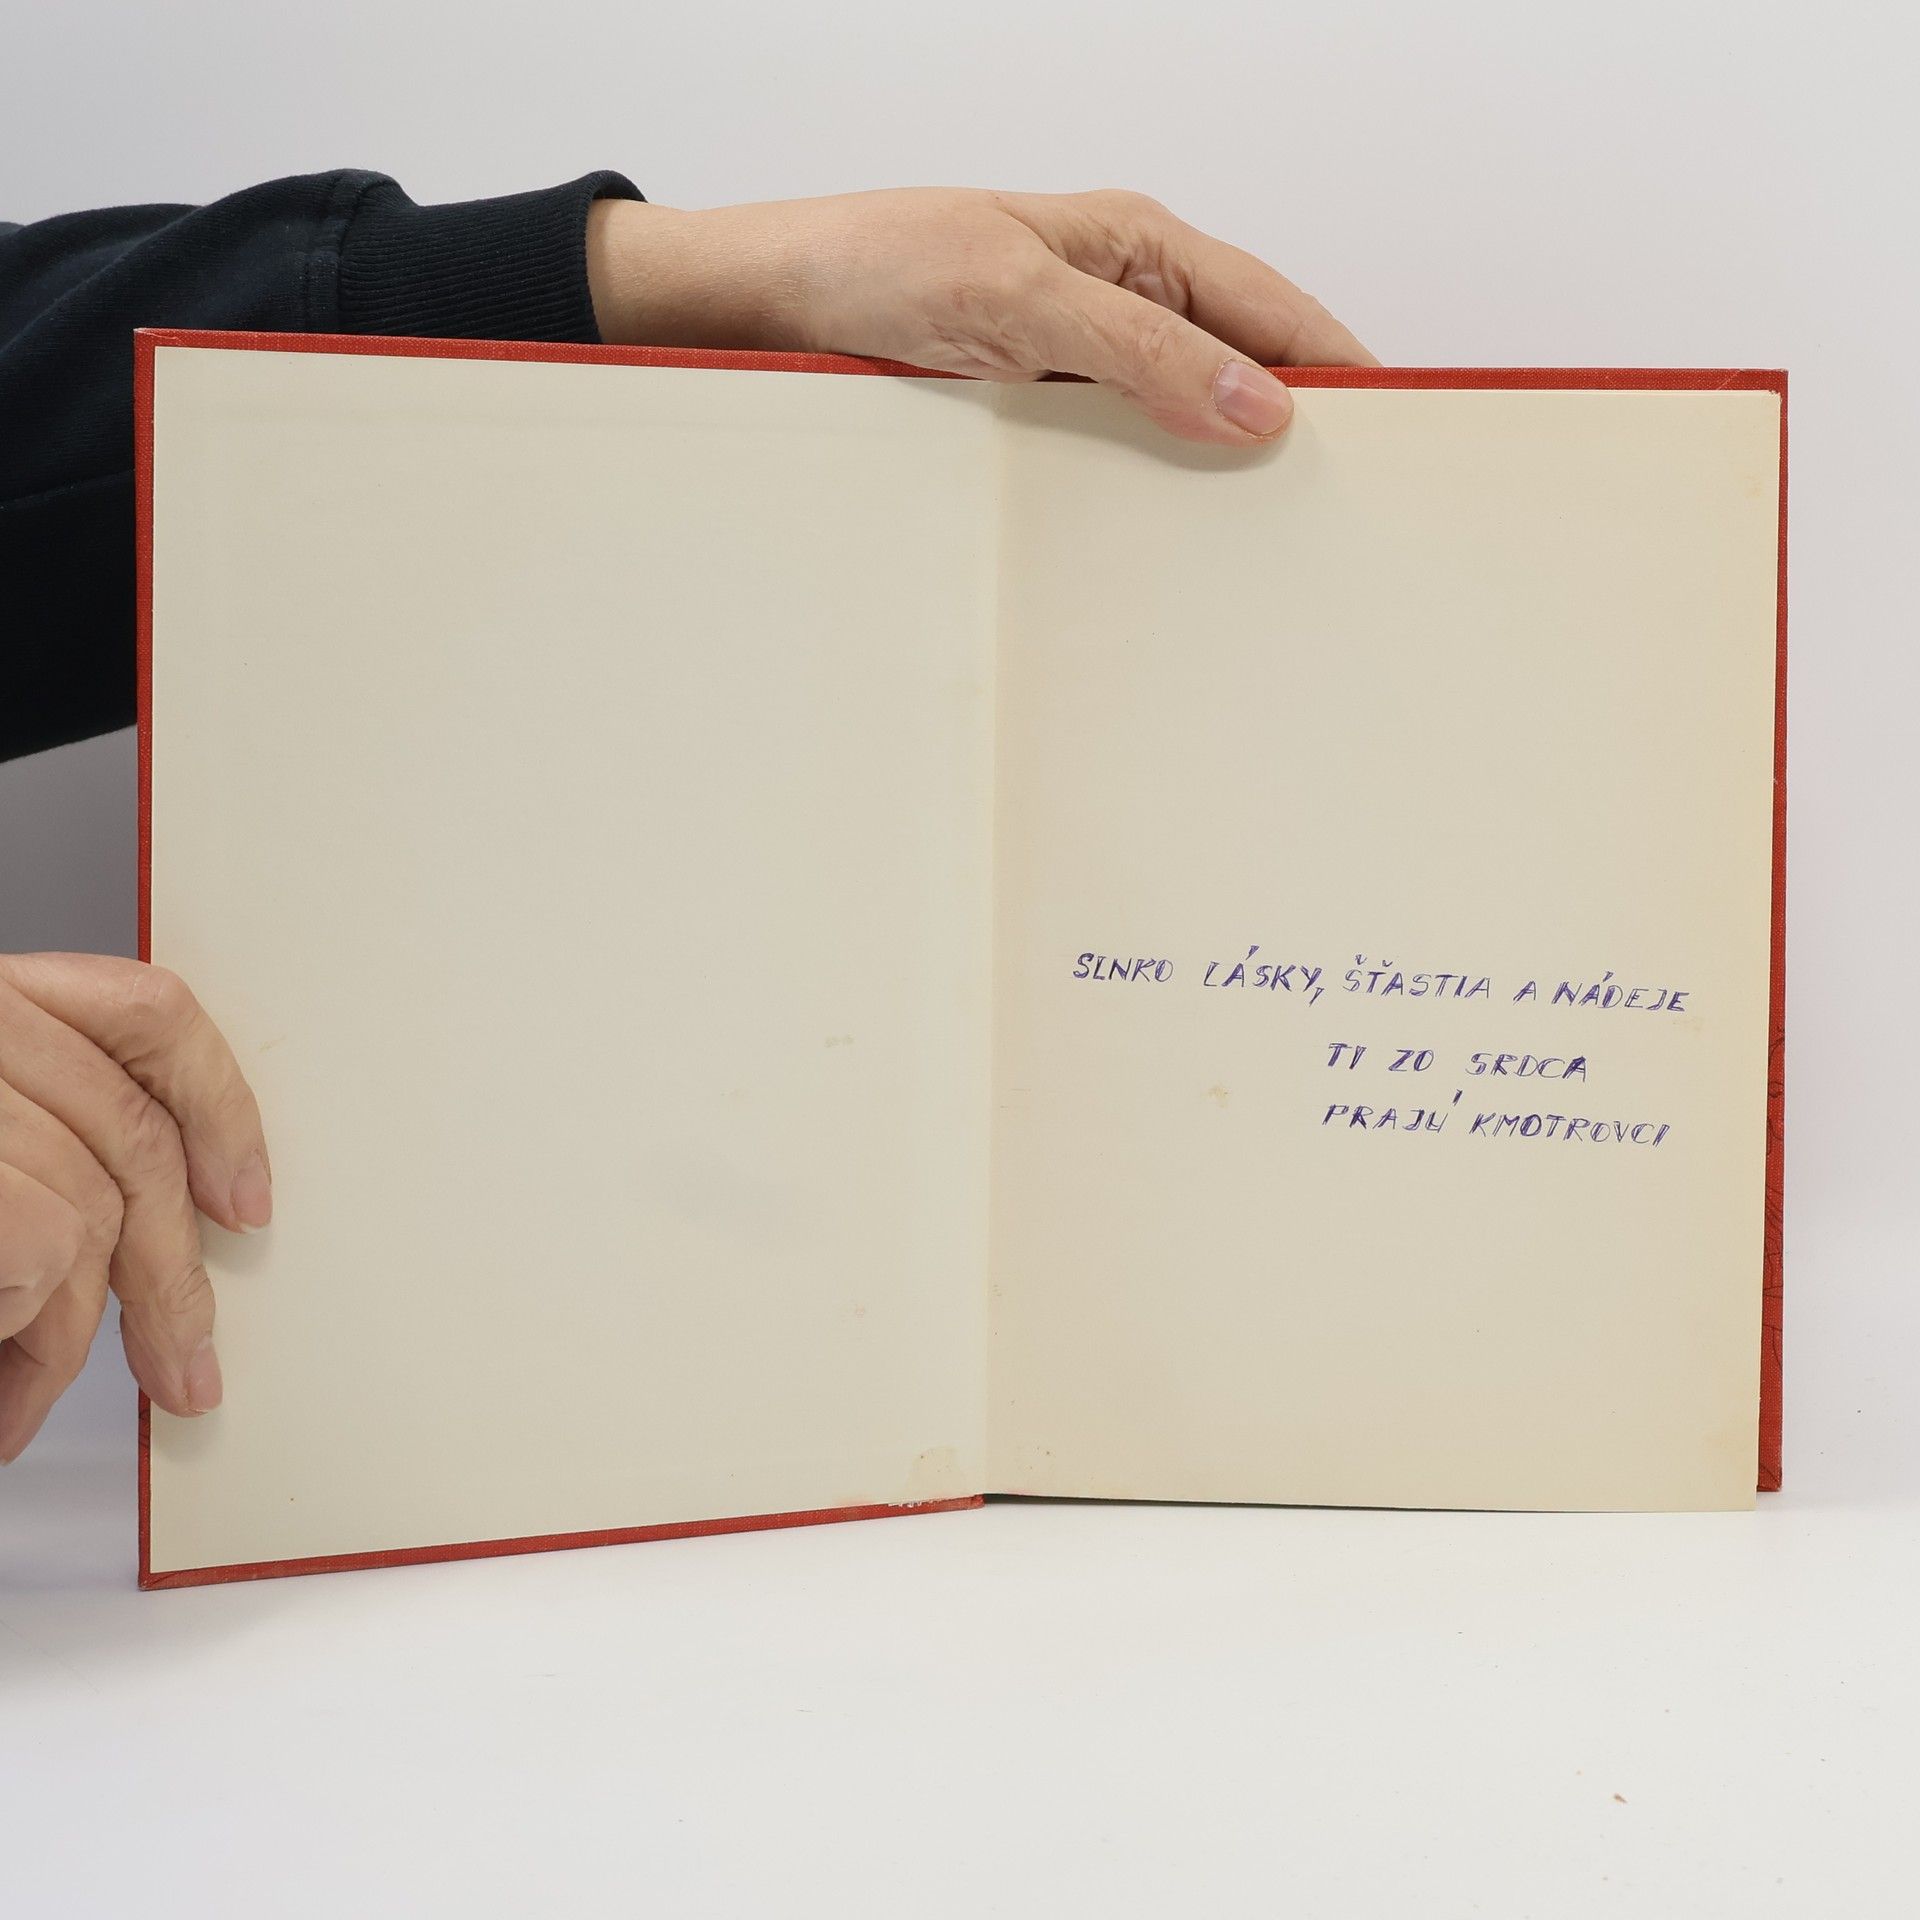 SLNKO LÁSKY, ŠŤASTIA A NÁDEJE
TI ZO SRDCA
PRAJÚ KMOTROVCI